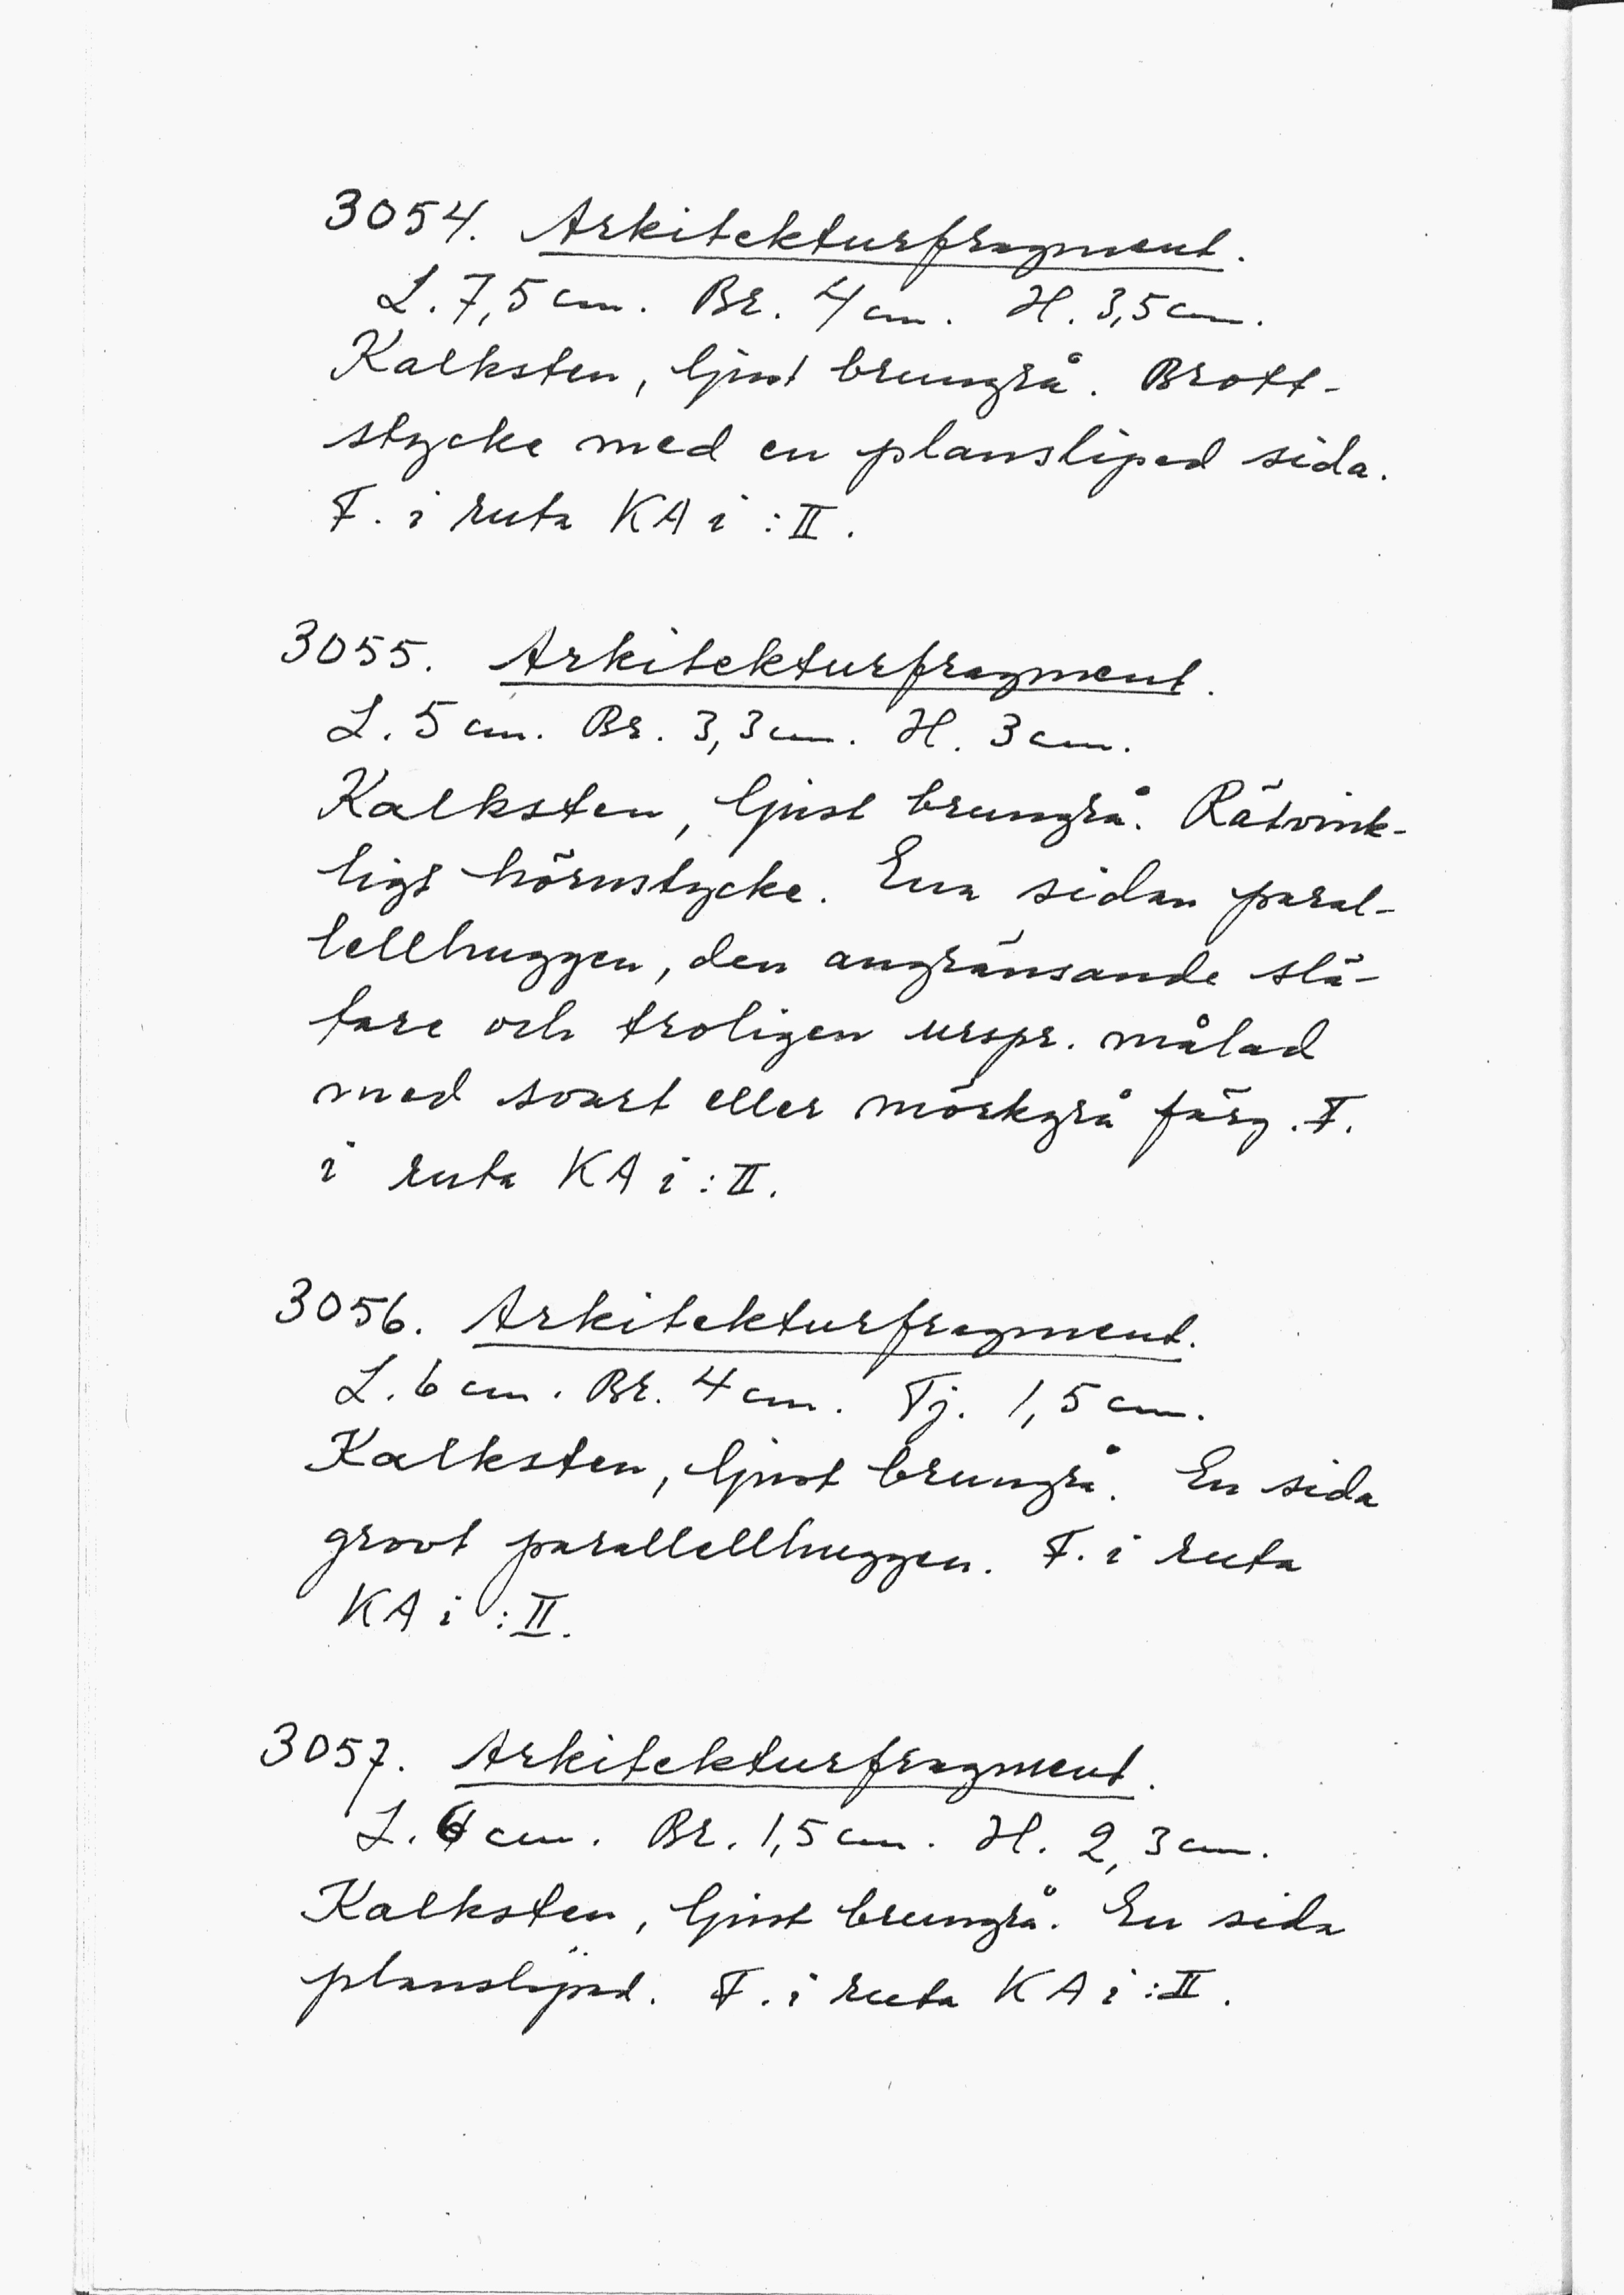 3054. Arkitekturfragment.
L. 7,5 cm. Br. 4 cm. H. 3,5 cm.
Kalksten, ljust brungrå. Brott-
stycke med en planslipad sida.
F. i ruta KA i : II.
3055. Arkitekturfragment.
L. 5 cm. Br. 3,3 cm. H. 3 cm.
Kalksten, ljust brungrå. Rätvink-
ligt hörnstycke. Ena sidan paral-
lellhuggen, den angränsande slä-
tare och troligen urspr. målad
med svart eller mörkgrå färg. F.
i ruta KA i : II.
3056. Arkitekturfragment.
L. 6 cm. Br. 4 cm. Tj. 1,5 cm.
Kalksten, ljust brungrå. En sida
grovt parallellhuggen. F. i ruta
KA i : II.
3057. Arkitekturfragment.
L. cm. Br. 1,5 cm. H. 2,3 cm.
Kalksten, ljust brungrå. En sida
planslipad. F. i ruta KA i : II.